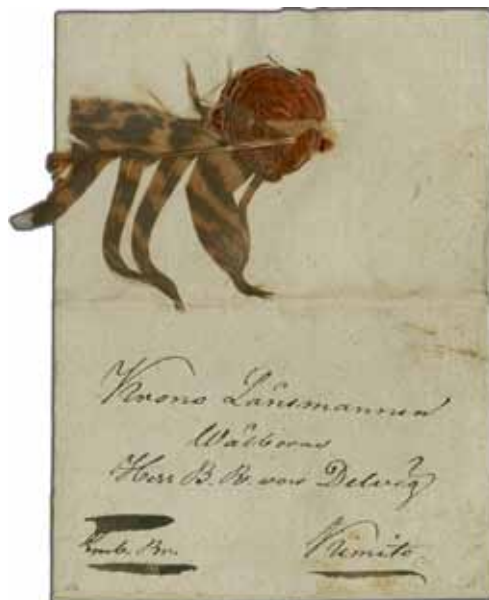 Krono Länsmannen
Wälborne
Herr B. R. von Delwig
Kimito